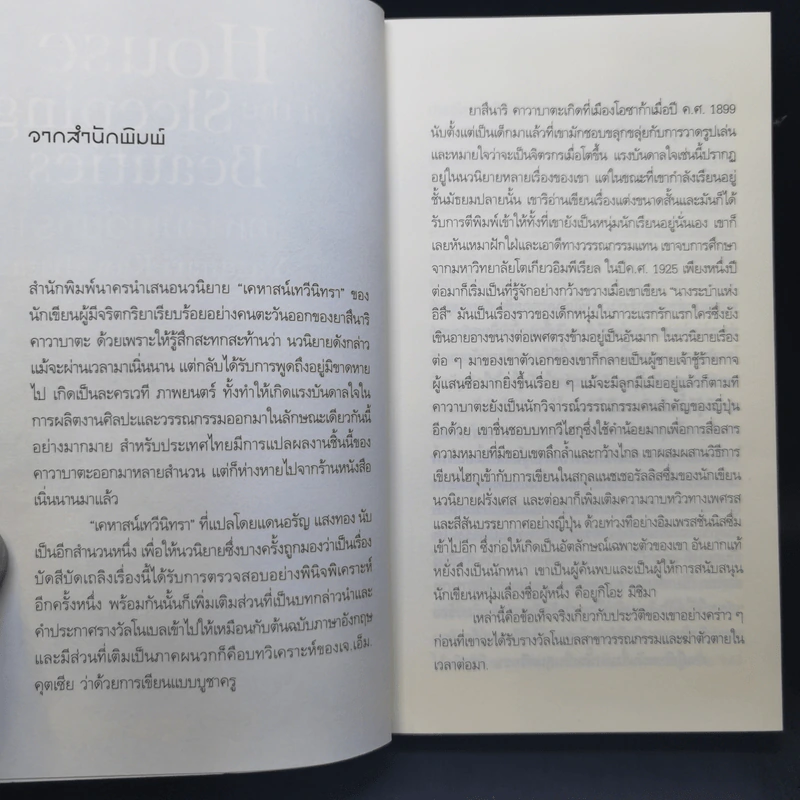 House
Sleeping
Beauties
จากสำนักพิมพ์
สำนักพิมพ์นาครนำเสนอนวนิยาย "เคหาสน์เทวีนิทรา" ของ
นักเขียนผู้มีจริตกริยาเรียบร้อยอย่างคนตะวันออกของยาสึนาริ
คาวาบาตะ ด้วยเพราะให้รู้สึกสะทกสะท้านว่า นวนิยายดังกล่าว
แม้จะผ่านเวลามาเนิ่นนาน แต่กลับได้รับการพูดถึงอยู่มิขาดหาย
ไป เกิดเป็นละครเวที ภาพยนตร์ ทั้งทำให้เกิดแรงบันดาลใจใน
การผลิตงานศิลปะและวรรณกรรมออกมาในลักษณะเดียวกันนี้
อย่างมากมาย สำหรับประเทศไทยมีการแปลผลงานชิ้นนี้ของ
คาวาบาตะออกมาหลายสำนวน แต่ก็ห่างหายไปจากร้านหนังสือ
เนิ่นนานมาแล้ว
"เคหาสน์เทวีนิทรา" ที่แปลโดยแดนอรัญ แสงทอง นับ
เป็นอีกสำนวนหนึ่ง เพื่อให้นวนิยายซึ่งบางครั้งถูกมองว่าเป็นเรื่อง
บัดสีบัดเถลิงเรื่องนี้ได้รับการตรวจสอบอย่างพินิจพิเคราะห์
อีกครั้งหนึ่ง พร้อมกันนั้นก็เพิ่มเติมส่วนที่เป็นบทกล่าวนำและ
คำประกาศรางวัลโนเบลเข้าไปให้เหมือนกับต้นฉบับภาษาอังกฤษ
และมีส่วนที่เติมเป็นภาคผนวกก็คือบทวิเคราะห์ของเจ.เอ็ม.
คุตเซีย ว่าด้วยการเขียนแบบบูชาครู
ยาสึนาริ คาวาบาตะเกิดที่เมืองโอซาก้าเมื่อปี ค.ศ. 1899
นับตั้งแต่เป็นเด็กมาแล้วที่เขามักชอบขลุกขลุ่ยกับการวาดรูปเล่น
และหมายใจว่าจะเป็นจิตรกรเมื่อโตขึ้น แรงบันดาลใจเช่นนี้ปรากฏ
อยู่ในนวนิยายหลายเรื่องของเขา แต่ในขณะที่เขากำลังเรียนอยู่
ชั้นมัธยมปลายนั้น เขาริอ่านเขียนเรื่องแต่งขนาดสั้นและมันก็ได้
รับการตีพิมพ์เข้าให้ทั้งที่เขายังเป็นหนุ่มนักเรียนอยู่นั่นเอง เขาก็
เลยหันเหมาฝักใฝ่และเอาดีทางวรรณกรรมแทน เขาจบการศึกษา
จากมหาวิทยาลัยโตเกียวอิมพีเรียล ในปีค.ศ. 1925 เพียงหนึ่งปี
ต่อมาก็เริ่มเป็นที่รู้จักอย่างกว้างขวางเมื่อเขาเขียน "นางระบำแห่ง
อิสึ" มันเป็นเรื่องราวของเด็กหนุ่มในภาวะแรกรักแรกใคร่ซึ่งยัง
เขินอายอางขนางต่อเพศตรงข้ามอยู่เป็นอันมาก ในนวนิยายเรื่อง
ต่อ ๆ มาของเขาตัวเอกของเขาก็กลายเป็นผู้ชายเจ้าชู้ร้ายกาจ
ผู้แสนซื่อมากยิ่งขึ้นเรื่อย ๆ แม้จะมีลูกมีเมียอยู่แล้วก็ตามที
คาวาบาตะยังเป็นนักวิจารณ์วรรณกรรมคนสำคัญของญี่ปุ่น
อีกด้วย เขาชื่นชอบบทกวีไฮกุซึ่งใช้คำน้อยมากเพื่อการสื่อสาร
ความหมายที่มีขอบเขตลึกล้ำและกว้างไกล เขาผสมผสานวิธีการ
เขียนไฮกุเข้ากับการเขียนในสกุลแนชเชอรัลลิสซึ่มของนักเขียน
นวนิยายฝรั่งเศส และต่อมาก็เพิ่มเติมความวาบหวิวทางเพศรส
และสีสันบรรยากาศอย่างญี่ปุ่น ด้วยท่วงทีอย่างอิมเพรสชั่นนิสซึ่ม
เข้าไปอีก ซึ่งก่อให้เกิดเป็นอัตลักษณ์เฉพาะตัวของเขา อันยากแท้
หยั่งถึงเป็นนักหนา เขาเป็นผู้ค้นพบและเป็นผู้ให้การสนับสนุน
นักเขียนหนุ่มเลื่องชื่อผู้หนึ่ง คือยูกิโอะ มิชิมา
เหล่านี้คือข้อเท็จจริงเกี่ยวกับประวัติของเขาอย่างคร่าว ๆ
ก่อนที่เขาจะได้รับรางวัลโนเบลสาขาวรรณกรรมและฆ่าตัวตายใน
เวลาต่อมา.